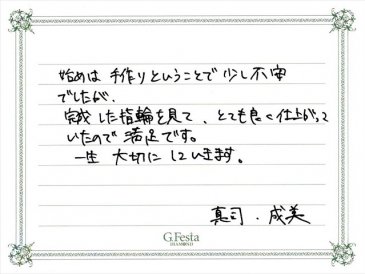 始めは 手作りということで 少し不安
でしたが、
完成した指輪を見て、とても良く仕上がって
いたので 満足です。
一生 大切にしていきます。
真司・成美
G.Festa
DIAMOND